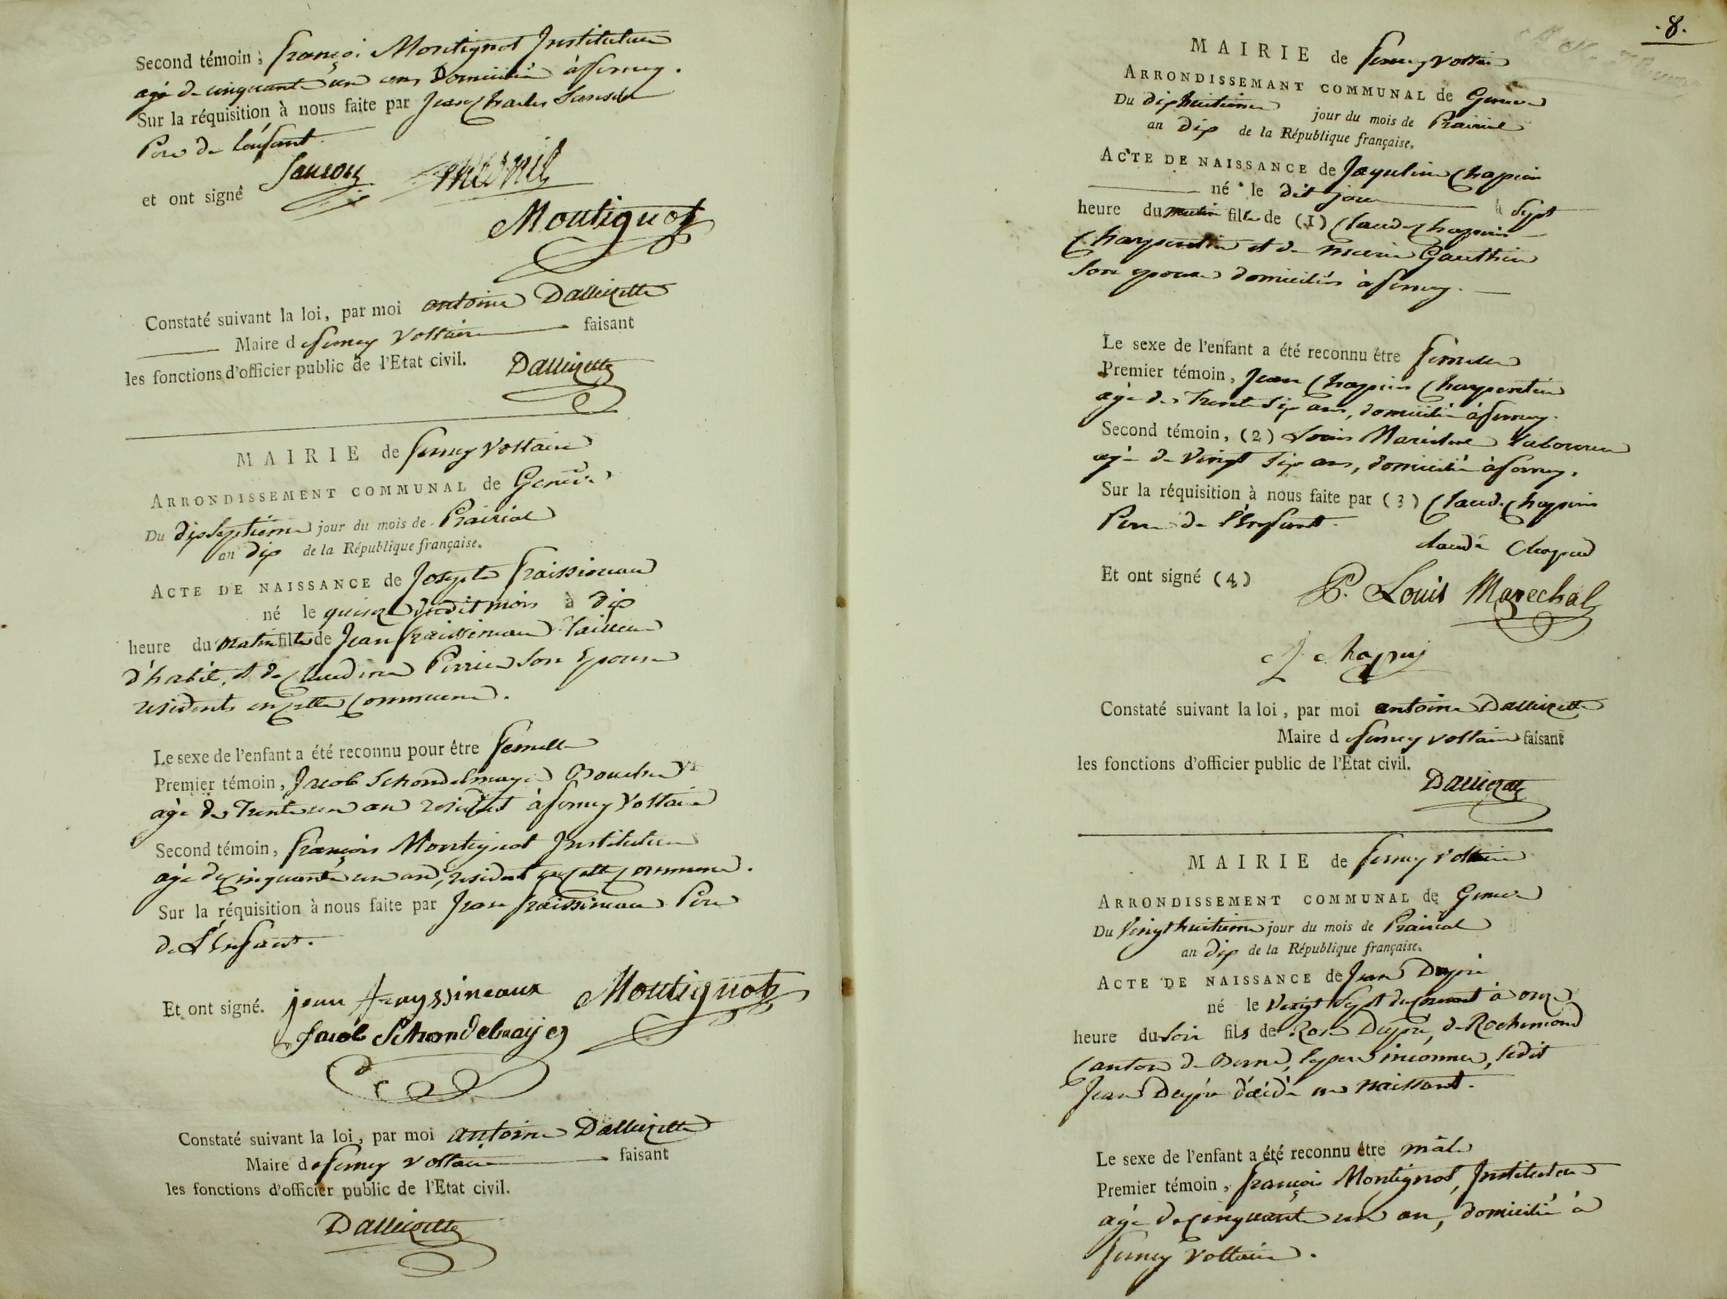 Second témoin, françoi Montignot Instituteur
agé de cinquante un ans Domicilié à ferney.
Sur la réquisition à nous faite par Jean Charles
Pere de l'enfant.
et ont signé
Montignot
Constaté suivant la loi, par moi antoine Dallizette
Maire d ferney Voltaire faisant
les fonctions d'officier public de l'Etat civil. Dallizette
MAIRIE de ferney Voltaire
ARRONDISSEMENT COMMUNAL de Genève
Du dixseptième jour du mois de Prairial
an dix de la République française.
ACTE DE NAISSANCE de Josephe fraissineau
né le quinze dudit mois à dix
heure du matin fille de Jean fraissineau Tailleur
d'habit, et de Claudine Perrier son Epouse
residents en cette Commune.
Le sexe de l'enfant a été reconnu pour être femelle
Premier témoin, Jacob Schondelmayer Boucher
agé de Trente un an résident à ferney Voltaire
Second témoin, françois Montignot Instituteur
agé de cinquante un an, résident en cette Commune.
Sur la réquisition à nous faite par Jean fraissineau Pere
de L'Enfant.
Et ont signé. jean frayssineaux Montignot
Jacob Schondelmayer
Constaté suivant la loi, par moi antoine Dallizette
Maire de ferney Voltaire faisant
les fonctions d'officier public de l'Etat civil.
Dallizette
.8.
MAIRIE de ferney Voltaire
ARRONDISSEMANT COMMUNAL de Geneve
Du dixhuitième jour du mois de Prairial
an Dix de la République française.
ACTE DE NAISSANCE de Jaqueline Chapuis
né le dit jour à Sept
heure du matin fille de (1) Claude Chapuis
Charpentier et de Marie Gauthier
son epouse domiciliés à ferney.
Le sexe de l'enfant a été reconnu être femelle
Premier témoin, Jean Chapuis Charpentier
agé de Trente Six ans, domicilié à ferney.
Second témoin, (2) Louis Maréchal Laboureur
agé de Vingt Six ans, domicilié à ferney.
Sur la réquisition à nous faite par (3) Claude Chapuis
Pere de l'Enfant.
claude Chapuis
Et ont signé (4) P. Louis Marechal
J chapuis
Constaté suivant la loi, par moi antoine Dallizette
Maire d ferney Voltaire faisant
les fonctions d'officier public de l'Etat civil.
Dallizette
MAIRIE de ferney Voltaire
ARRONDISSEMENT COMMUNAL de Geneve
Du Vingthuitième jour du mois de Prairial
an dix de la République française.
ACTE DE NAISSANCE de Jean Dupré
né le Vingt Sept du courant à onze
heure du soir fils de Rose Dupré, de Rochemond
Canton de Berne, le pere inconnu, ledit
Jean Dupré décédé en naissant.
Le sexe de l'enfant a été reconnu être mâle
Premier témoin, françois Montignot, Instituteur
agé de cinquante un an, domicilié à
ferney Voltaire.